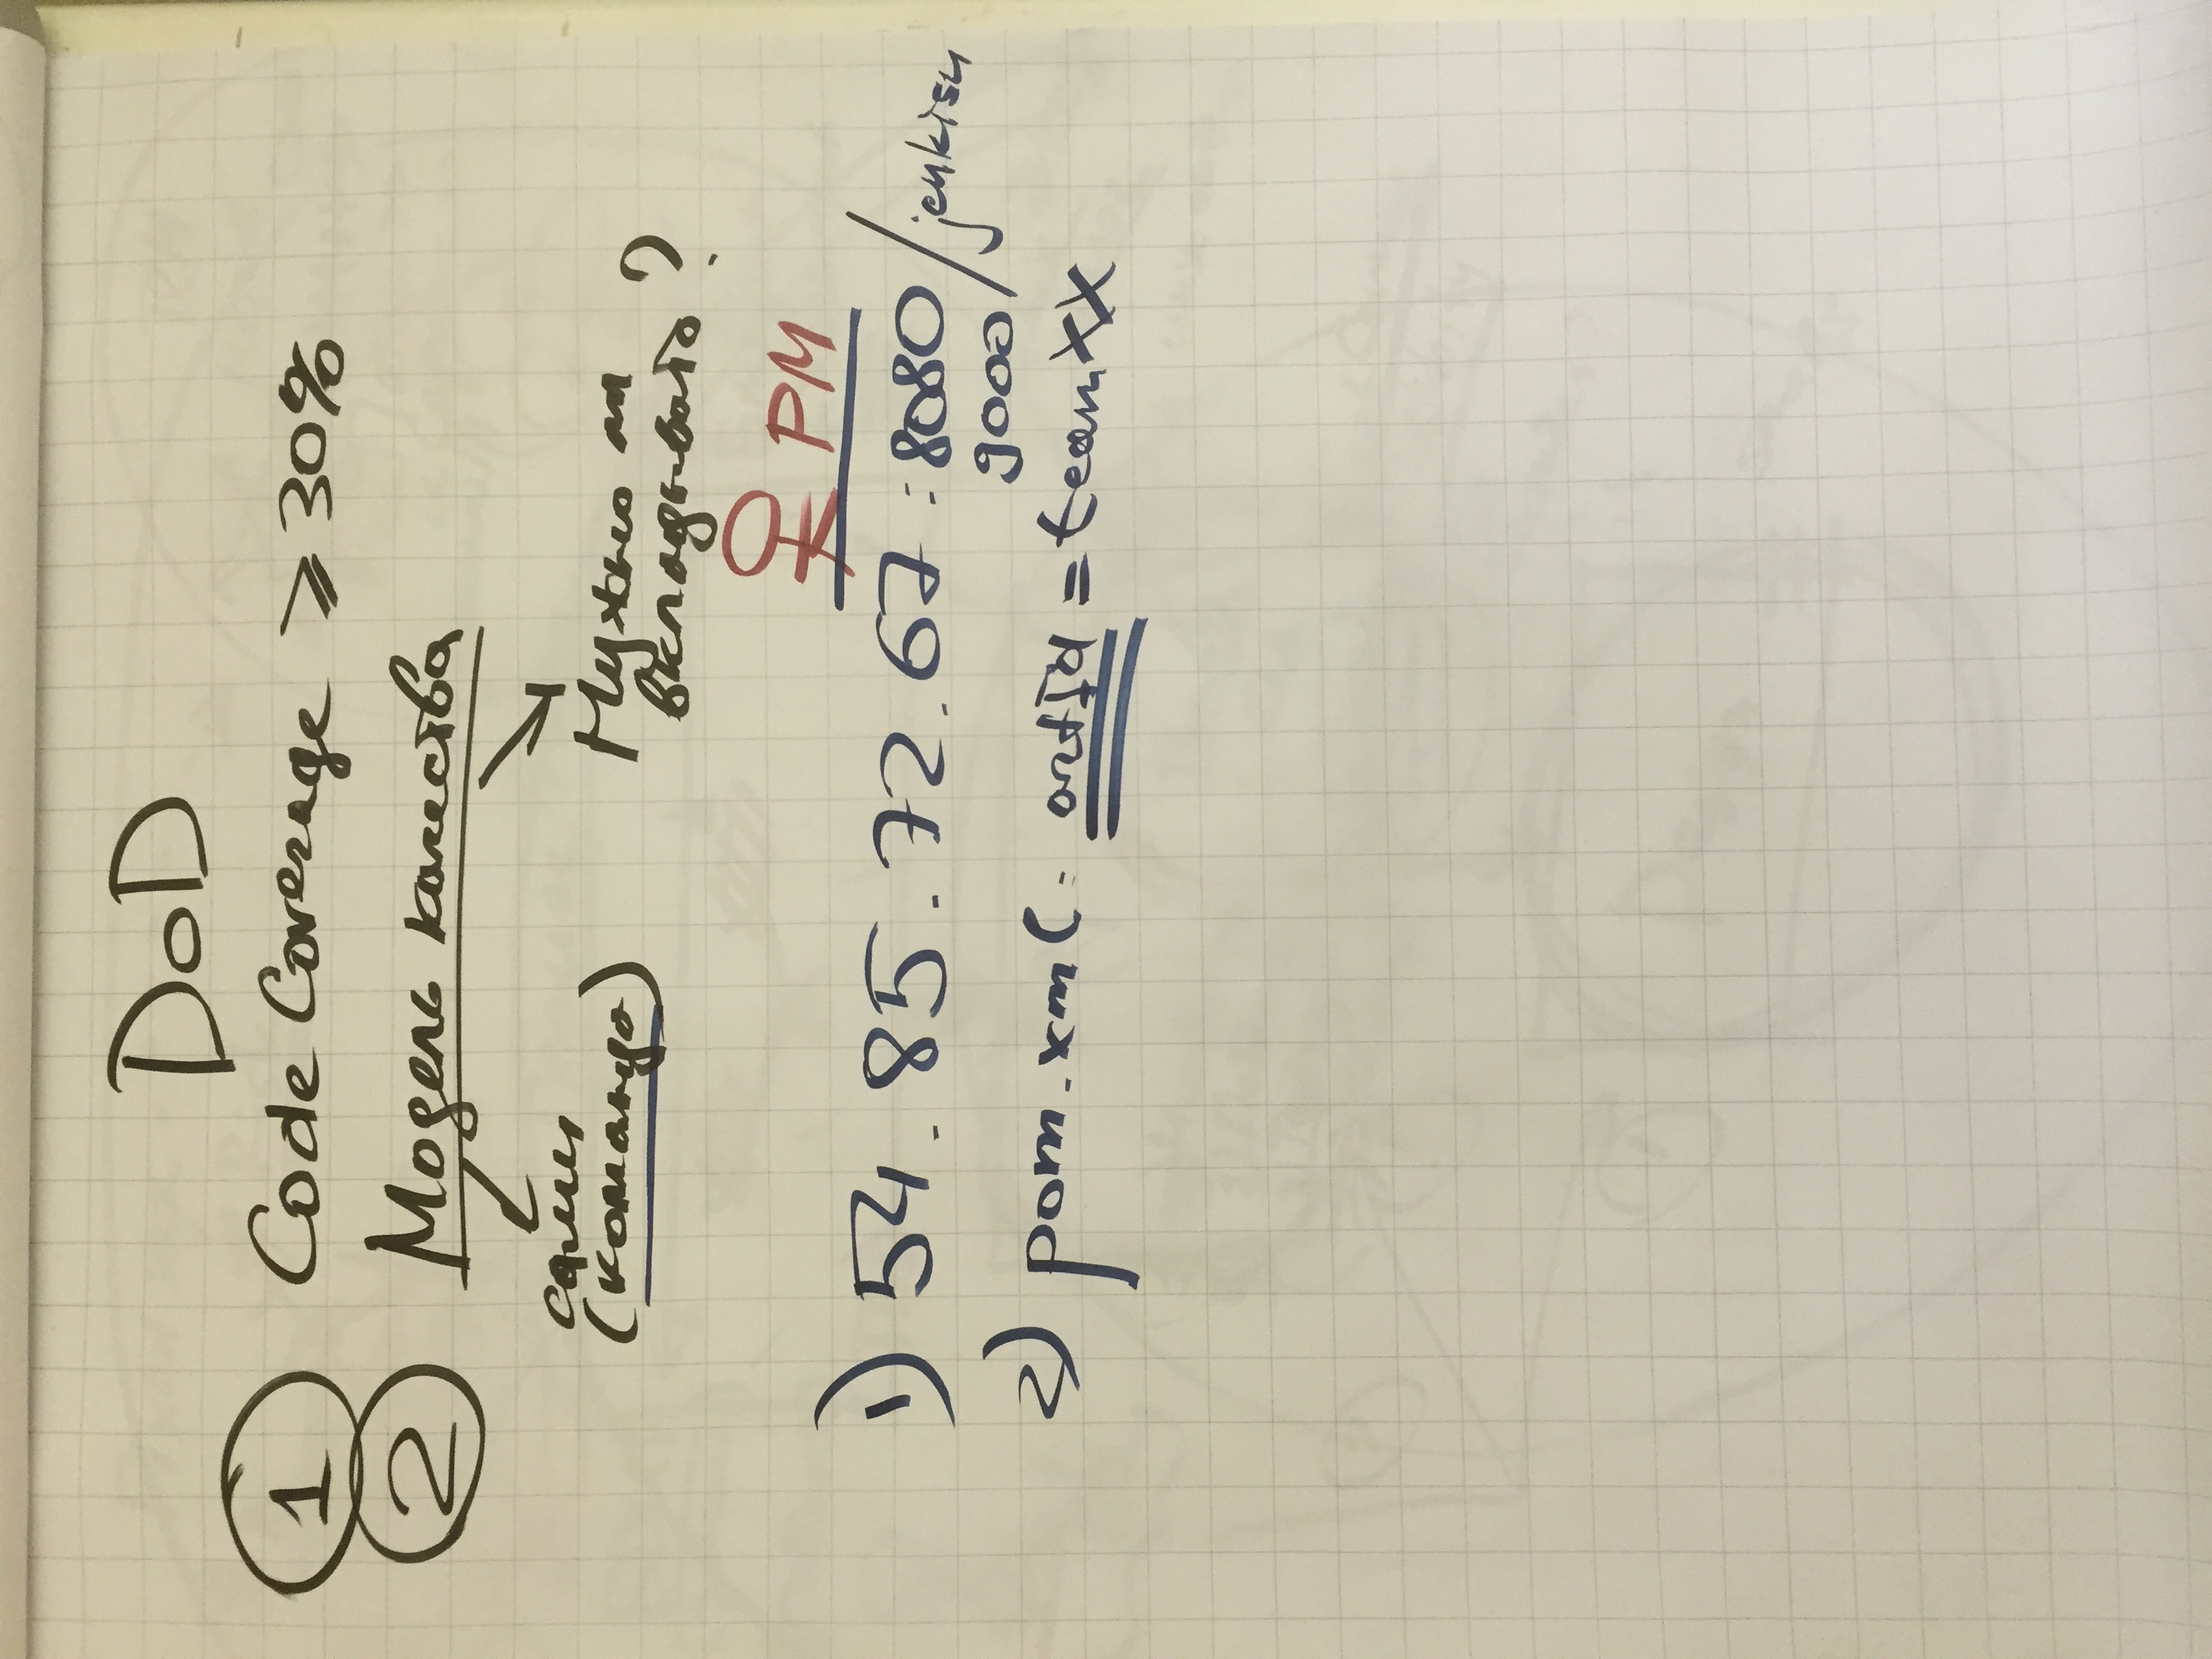 DoD
1 Code Coverage ⩾ 30%
2 Модель качества
сами
(команда)
Нужно ли
вкладывать ?
PM
1) 54.85.72.67:8080/jenkisn
9000
2) pom.xml: artId = teamXX